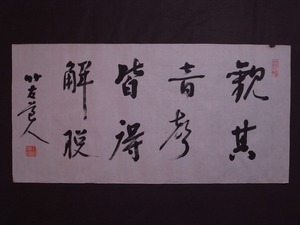 觀其
音聲
皆得
解脱
竹左道人